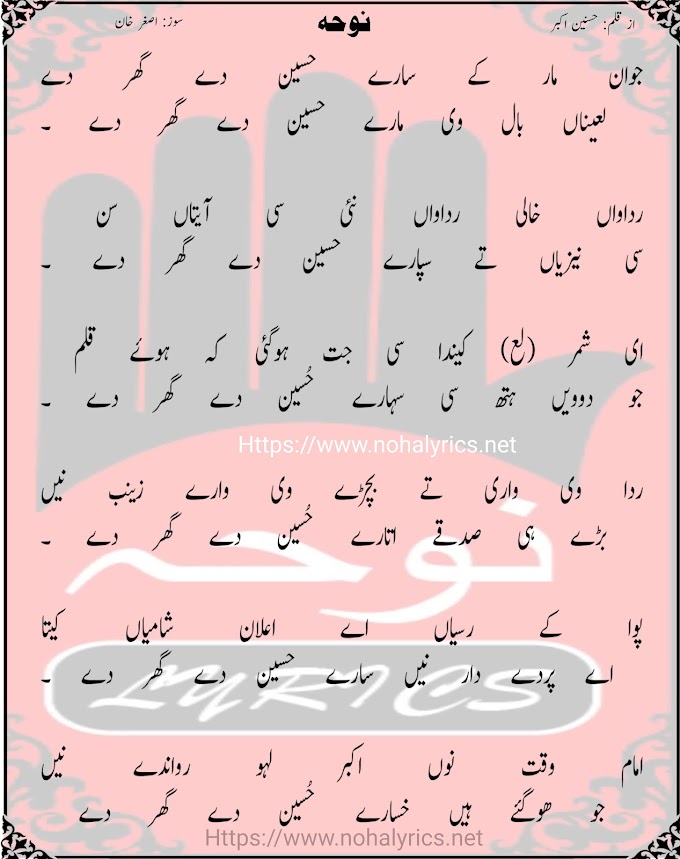 از قلم: حسنین اکبر
نوحہ
سوز: اصغر خان
جوان مار کے سارے حسین دے گھر دے
لعیناں بال وی مارے حسین دے گھر دے ۔
رداواں خالی رداواں نئی سی آیتاں سن
سی نیزیاں تے سپارے حسین دے گھر دے ۔
ای شمر (لع) کیندا سی جت ہوگئی کہ ہوئے قلم
جو دوویں ہتھ سی سہارے حُسین دے گھر دے ۔
Https://www.nohalyrics.net
ردا وی واری تے بچڑے وی وارے زینب نیں
بڑے ہی صدقے اتارے حُسین دے گھر دے ۔
نوحہ
پوا کے رسیاں اے اعلان شامیاں کیتا
اے پردے دار نیں سارے حسین دے گھر دے ۔
LYRICS
امام وقت نوں اکبر لہو رواندے نیں
جو ھوگئے ہیں خسارے حُسین دے گھر دے
Https://www.nohalyrics.net